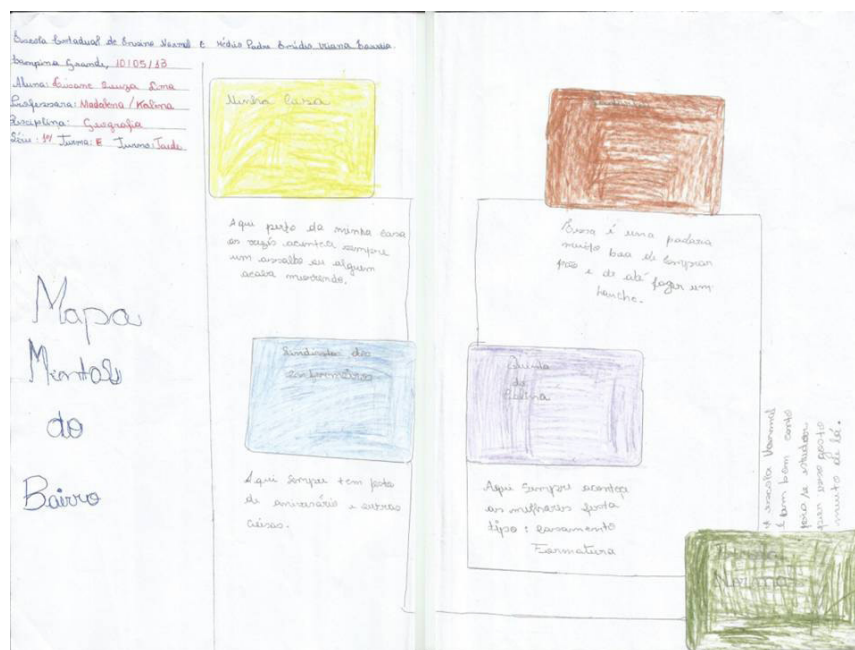 Escola Estadual de Ensino Normal E Médio Padre Emidio Viana Correia.
Campina Grande, 10/05/13
Aluna: Lisane Souza Lima
Professora: Madalena / Kalina
Disciplina: Geografia
Série: 1º Turma: E Turno: Tarde
Mapa
Mental
do
Bairro
Minha Casa
Aqui perto da minha casa
as vezes acontece sempre
um assalto ou alguem
acaba morrendo.
Sindicato dos
enfermeiros
Aqui sempre tem festa
de aniversário e outras
coisas.
Essa é uma padaria
muito boa de comprar
pão e de até fazer um
lanche.
Quinta
da
Colina
Aqui Sempre acontece
as melhores festa
tipo: casamento
Formatura
A escola Normal
é bom canto
para se estudar
por isso gosto
muito de lá.
Normal